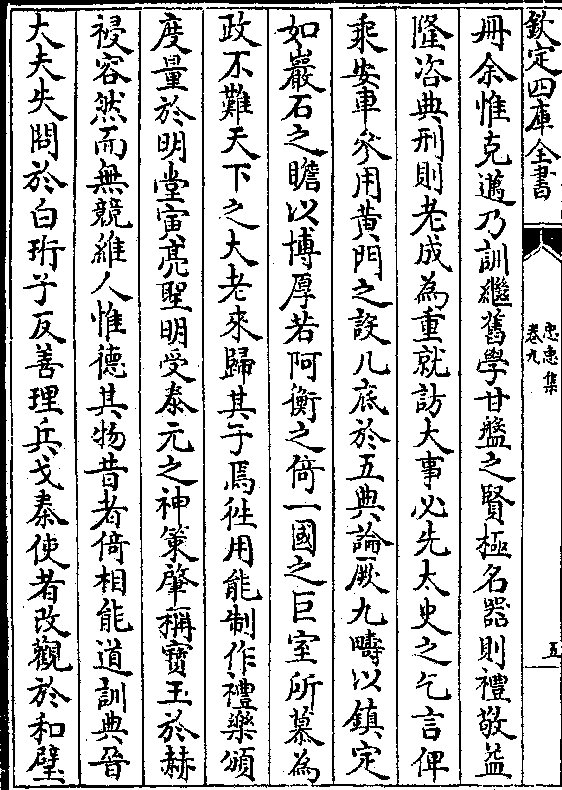 欽定四庫全書
忠惠集
卷九
五
冊余惟克邁乃訓繼舊學甘盤之賢極名器則禮敬益
隆咨典刑則老成為重就訪大事必先太史之乞言俾
乘安車參用黃門之設几底於五典論厥九疇以鎮定
如巖石之瞻以博厚若阿衡之倚一國之巨室所慕為
政不難天下之大老來歸其子焉往用能制作禮樂頒
度量於明堂寅亮聖明受泰元之神策肇稱寶玉於赫
祲容然而無競維人惟德其物昔者倚相能道訓典晉
大夫失問於白珩子反善理兵戈秦使者改觀於和璧